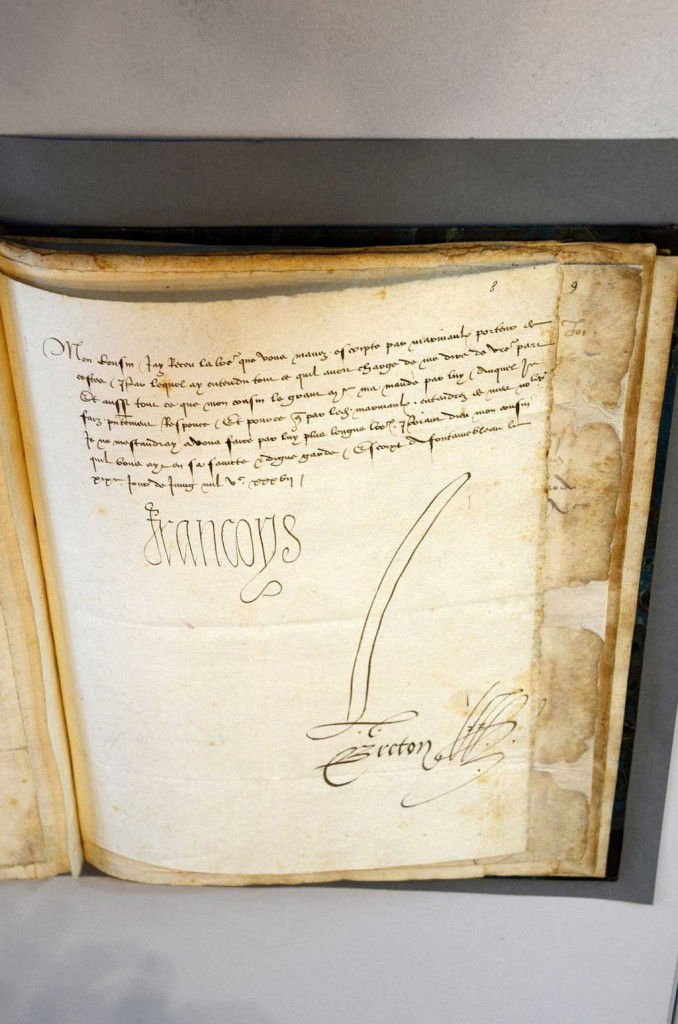 8 9
Mon Cousin Jay Receu la lre que vous mavez escripte par marivaulx porteur de
cestes / Par lequel ay entendu tout ce quil avoit charge de me dire de vre part
Et aussi tout ce que mon cousin le grant me ma mande par luy / Auquel Je
faiz Responce / Et pource par marivaulx entendrez de mes
Je ne mestandray a vous faire par luy plus longue lre. Priant dieu mon cousin
quil vous ayt en sa saincte & digne garde / Escript de fontainebleau le
jour de Juing mil Vc xxxvii /
Francoys
Breton